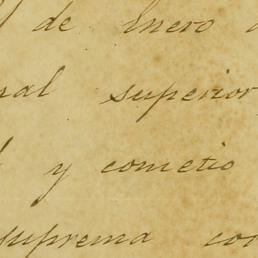 de Enero
superior
y cometio
suprema